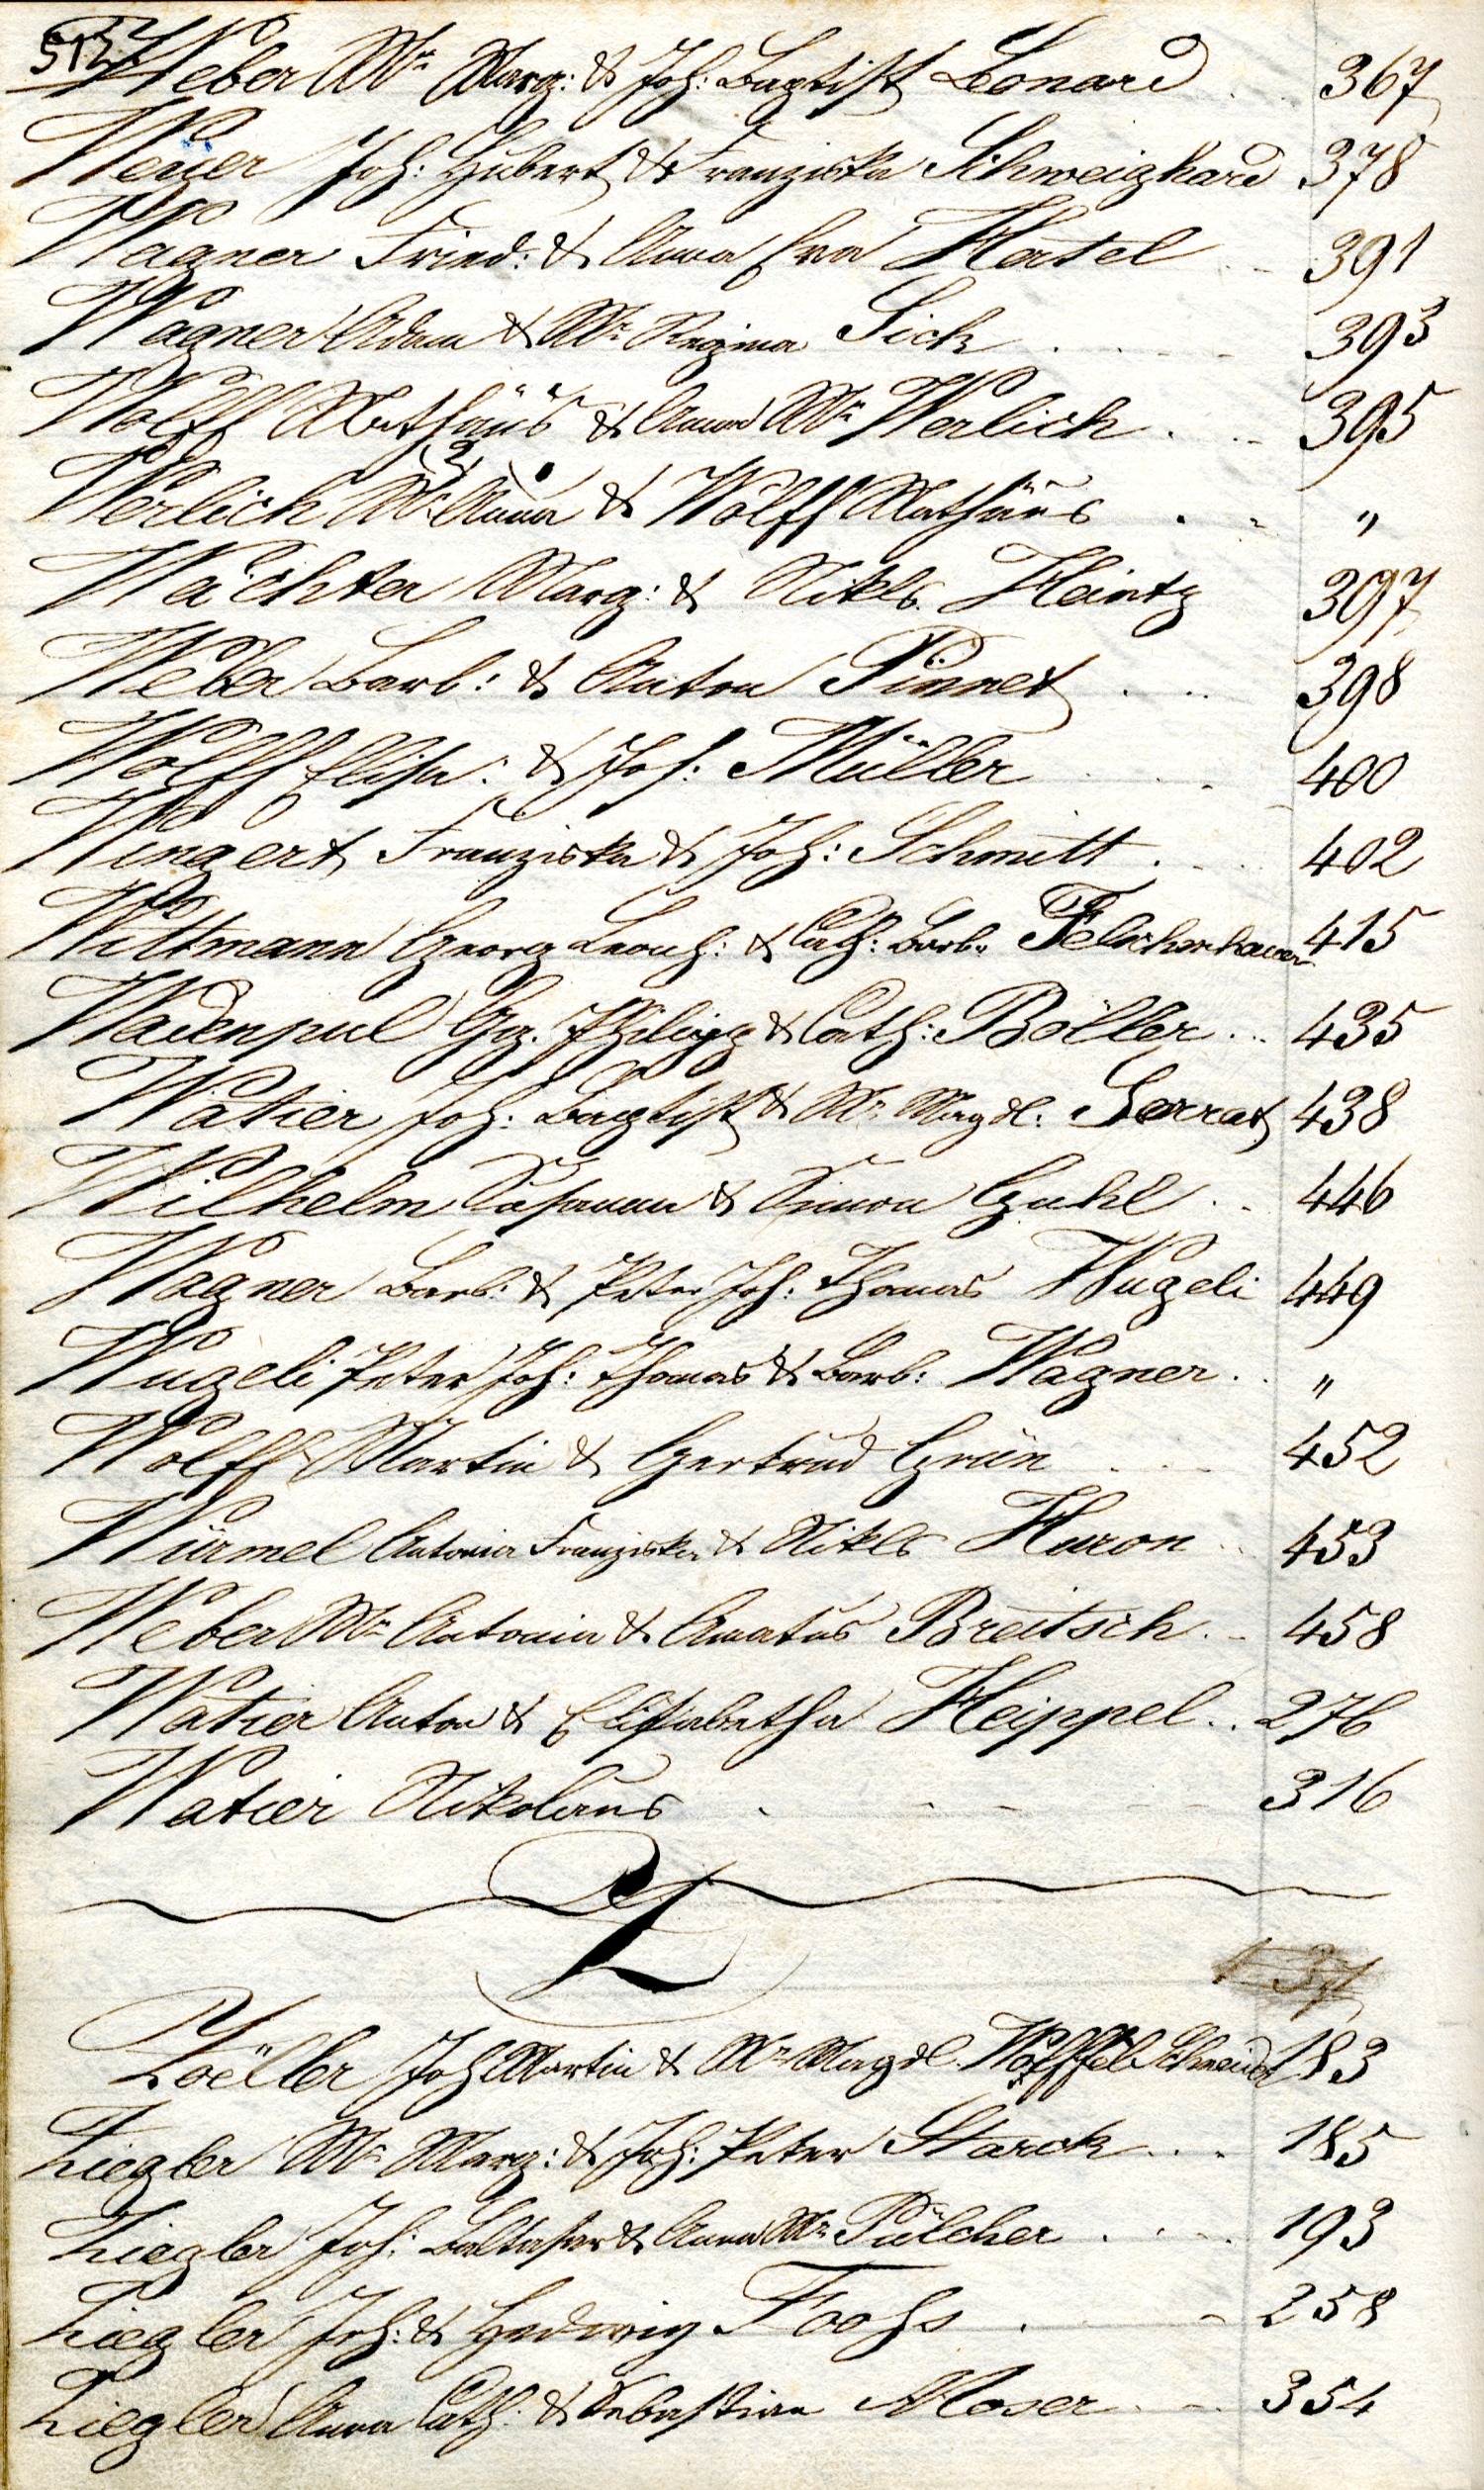 512
Weber Ma Marg: & Joh: Baptist Lenard 367
Weyer Joh: Hubert & Franziska Schweighard 378
Wagner Fried: & Anna Eva Hertel 391
Wagner Adam & Ma Regina Sick 393
Wolff Mathäus & Anna Ma Werlich 395
Werlich Ma Anna & Wolff Mathäus "
Wächter Marg: & Nikls. Heintz 397
Weber Barb: & Anton Pinnet 398
Wolff Elisa: & Joh: Müller 400
Wingert Franziska & Joh: Schmitt 402
Wittmann Georg Leonh: & Cath: Barb: 415
Wadenpul Gg. Philipp & Cath: Böller 435
Watier Joh: Baptist & Ma Magdl: Serrat 438
Wilhelm Susanna & Simon Guhl 446
Wagner Barb: & Peter Joh: Thomas Wugeli 449
Wugeli Peter Joh: Thomas & Barb: Wagner "
Wolff Martin & Gertrud Grün 452
Würmel Antonia Franziska & Nikls Huron 453
Weber Ma Antonia & Amatus Breitsch 458
Watier Anton & Elisabetha Heippel 276
Watier Nikolaus 316
Z
Zoëller Joh Martin & Ma Magdl. Wölffel Schneider 183
Ziegler Ma Marg: & Joh: Peter Starck 185
Ziegler Joh: Baltasar & Anna Ma Pülcher 193
Ziegler Joh: & Hedwig Foohs 258
Ziegler Anna Cath: & Sebastian Moser 354